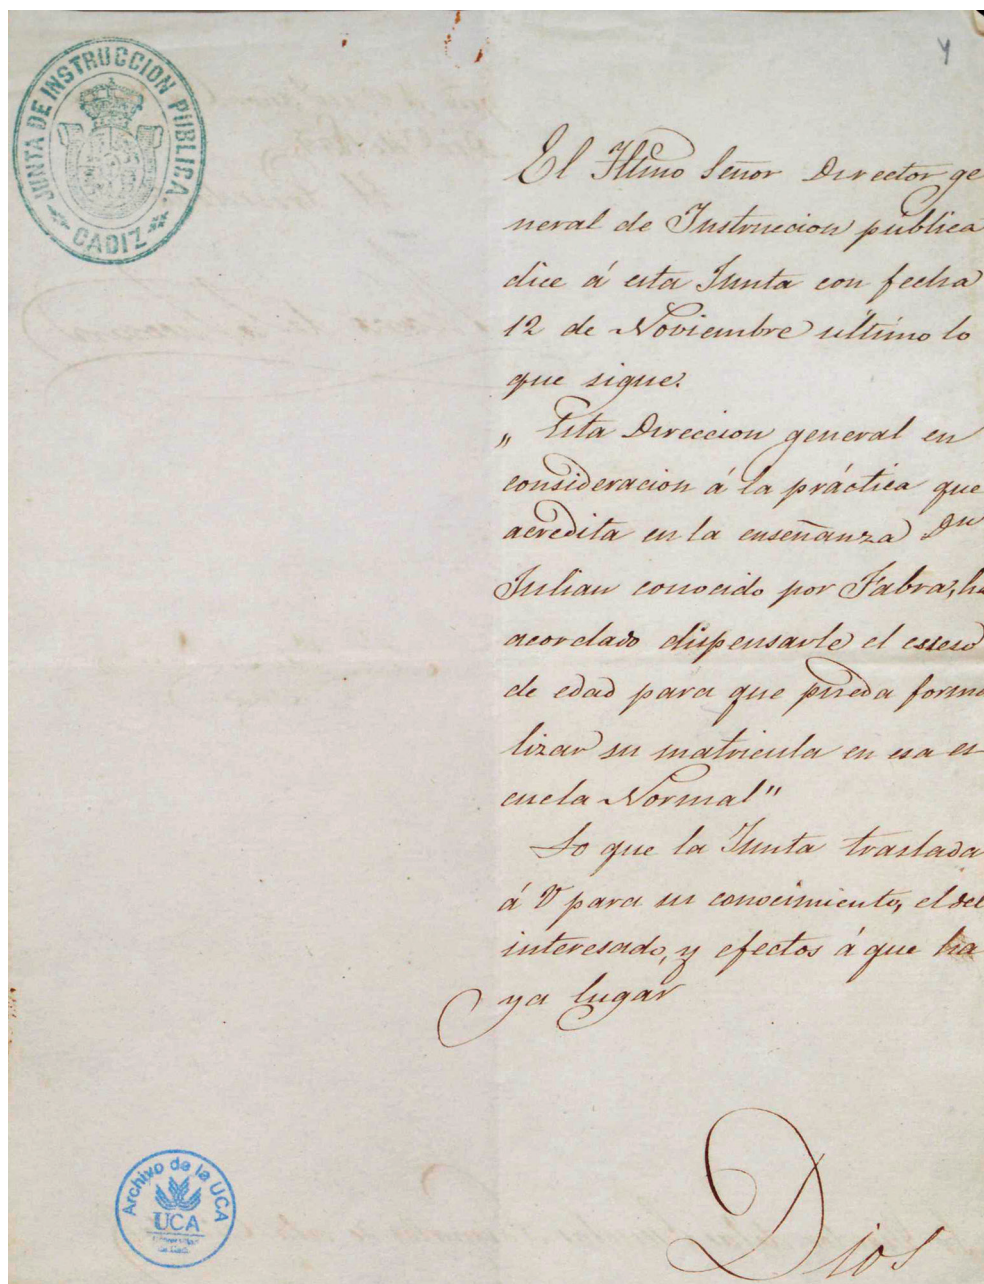 JUNTA DE INSTRUCCION PUBLICA.
CADIZ
4
El Illmo Señor Director ge
neral de Instruccion publica
dice á esta Junta con fecha
12 de Noviembre último lo
que sigue.
„ Esta Direccion general en
consideracion á la práctica que
acredita en la enseñanza Dn
Julian conocido por Fabra, ha
acordado dispensarle el esceso
de edad para que pueda forma
lizar su matricula en esa es
cuela Normal"
Lo que la Junta traslada
á V para su conocimiento, el del
interesado, y efectos á que ha
ya lugar
Dios
Archivo de la UCA
UCA
Universidad
de Cádiz